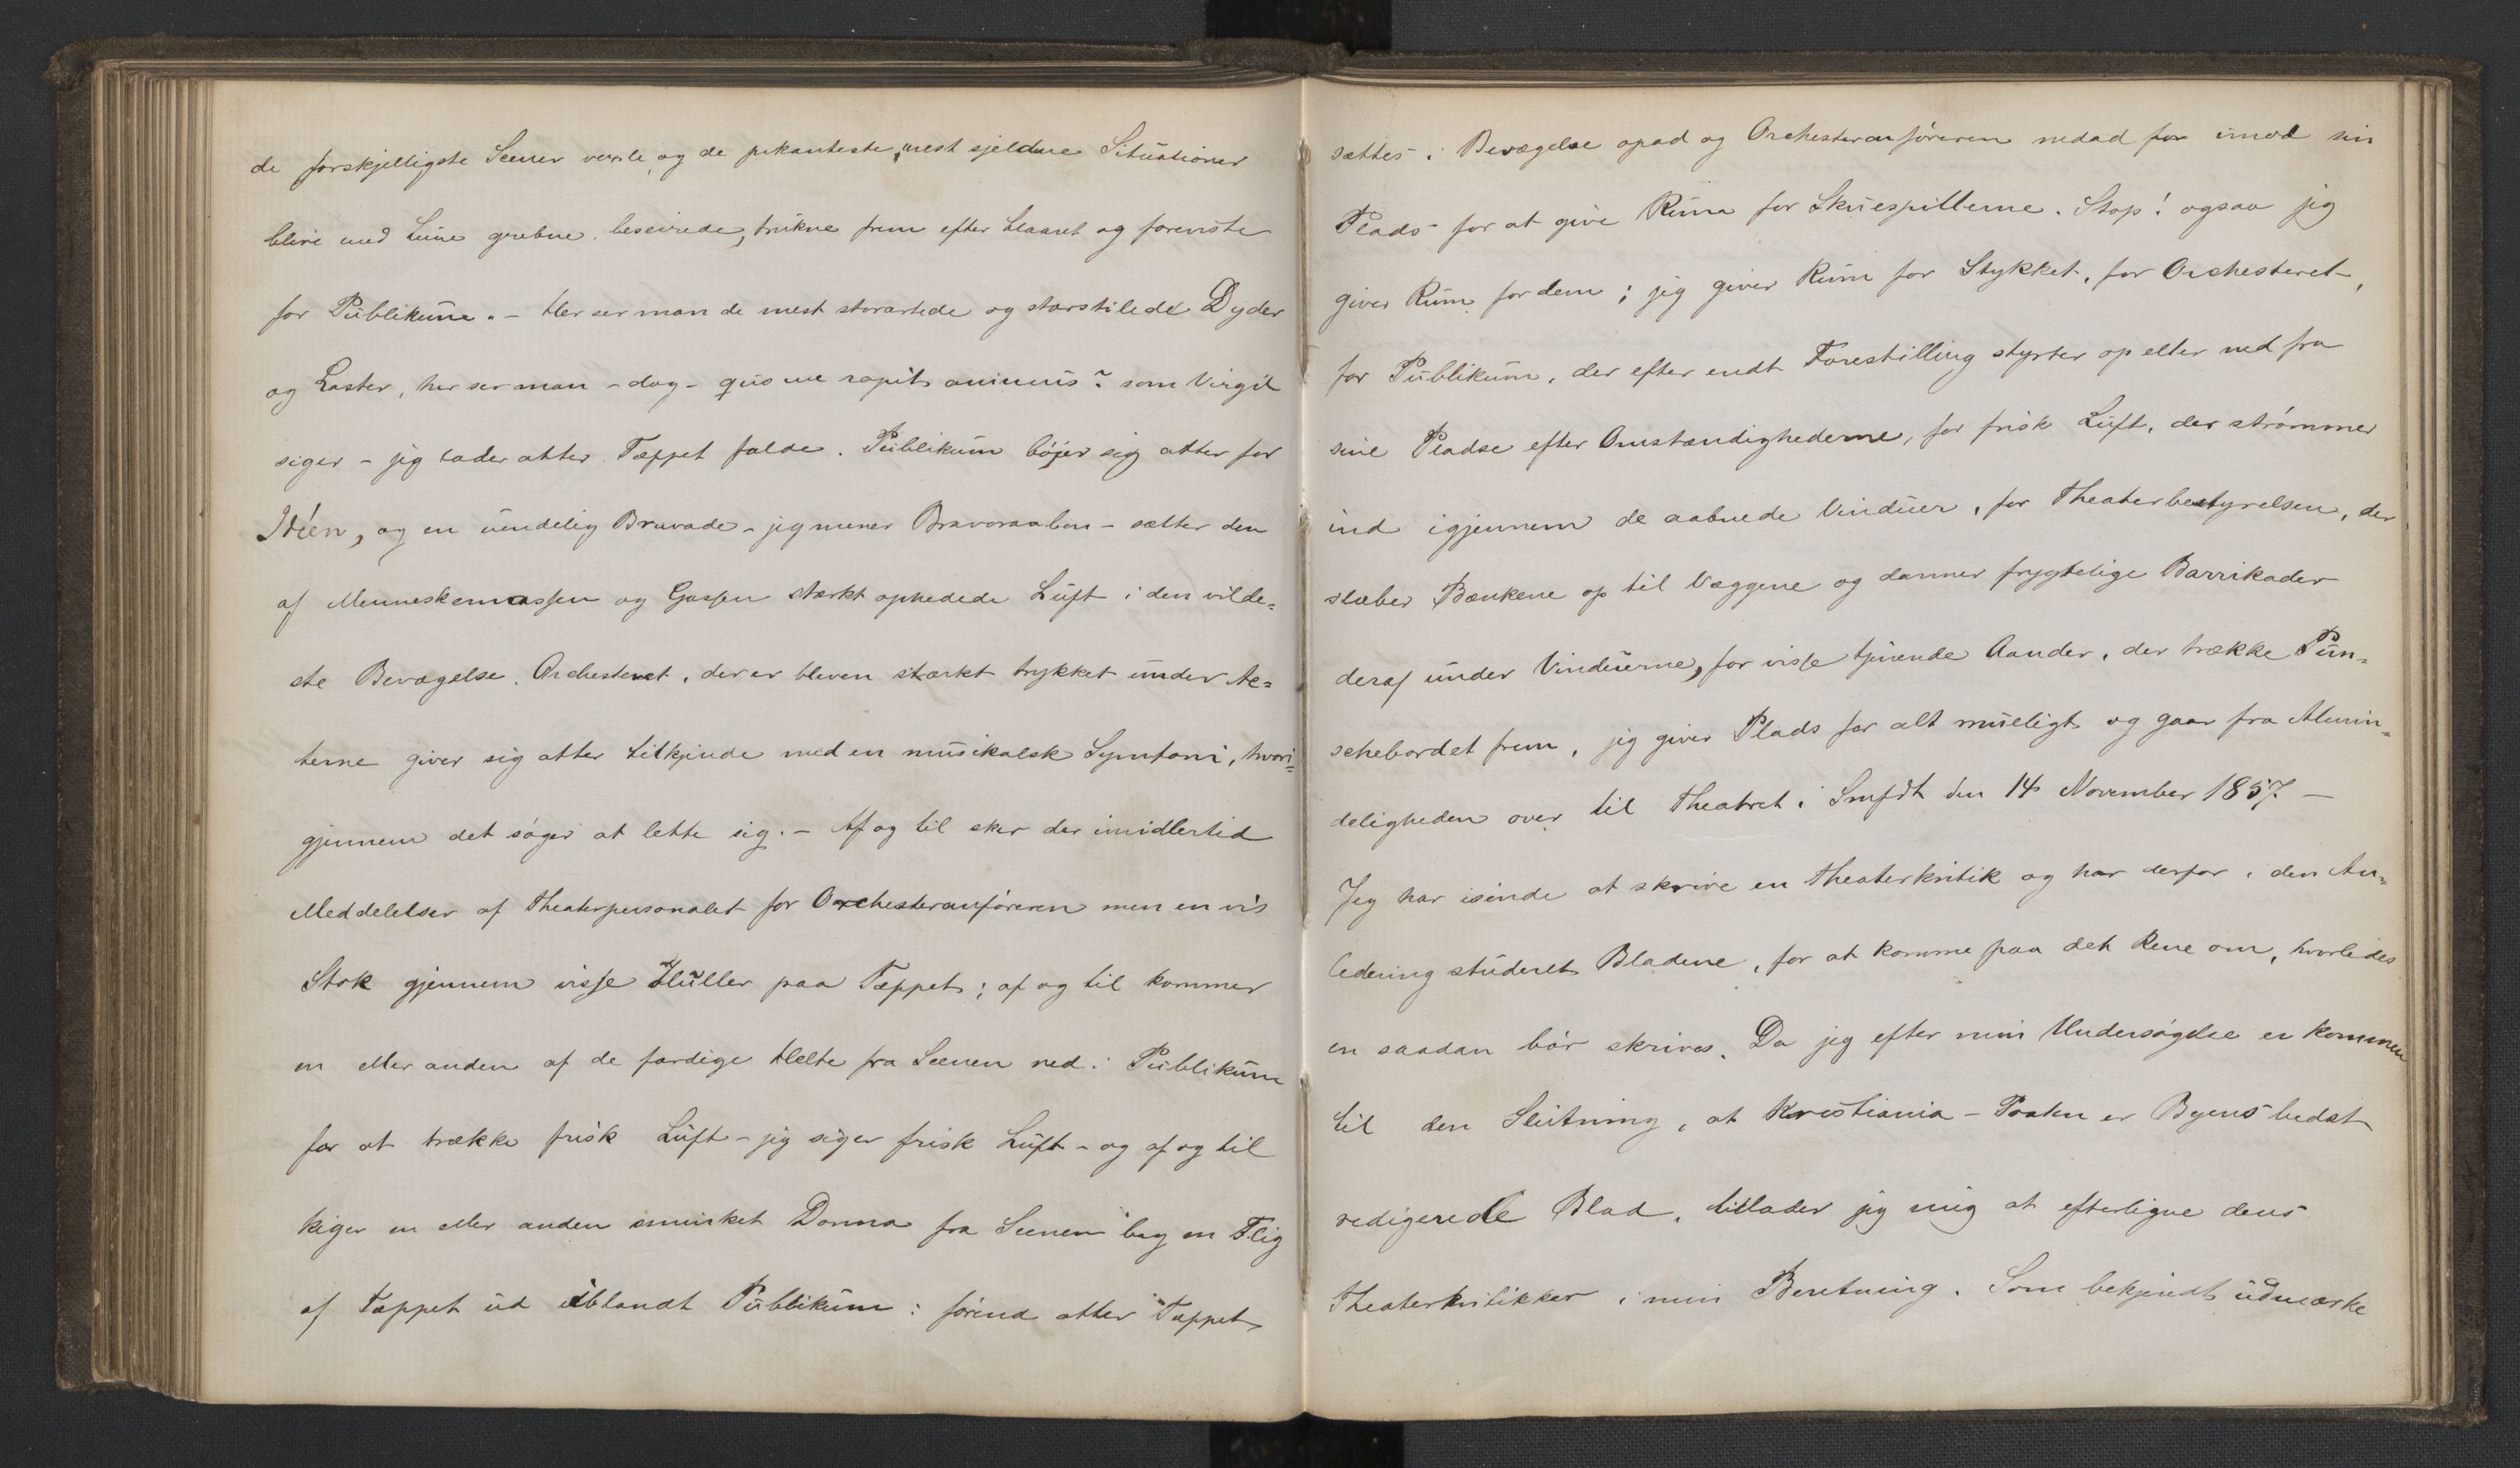 de forskjelligste Scener vexle, og de pikanteste, mest sjeldne Situationer
blive med Lune grebne, beseirede, trukne frem efter Haaret og foreviste
for Publikum. - Her ser man de mest storartede og storstilede Dyder
og Laster, her ser man - dog - quo me rapit animus? som Virgil
siger - jeg lader atter Tæppet falde. Publikum bøjer sig atter for
Idéen, og en uendelig Bravade - jeg mener Bravoraaben - sætter den
af Menneskemassen og Gassen stærkt ophedede Luft i den vilde=
ste Bevægelse. Orchesteret, der er bleven stærkt trykket under Ac=
terne giver sig atter tilkjende med en musikalsk Symfoni, hvori=
gjennem det søger at lette sig. - Af og til sker der imidlertid
Meddelelser af Theaterpersonalet for Orchesteranføreren men en vis
Stok gjennem visse Huller paa Tæppet; af og til kommer
en eller anden af de færdige Helte fra Scenen ned i Publikum
for at trække frisk Luft - jeg siger frisk Luft - og af og til
kiger en eller anden sminket Donna fra Scenen bag en Flig
af Tæppet ud iblandt Publikum: førend atter Tæppet
sættes i Bevægelse opad og Orchesteranføreren nedad for imod sin
Plads for at give Rum for Skuespillerne. Stop! ogsaa jeg
giver Rum for dem; jeg giver Rum for Stykket, for Orchesteret,
for Publikum, der efter endt Forestilling styrter op eller ned fra
sine Pladse efter Omstændighederne, for frisk Luft, der strømmer
ind igjennem de aabnede Vinduer, for Theaterbestyrelsen, der
slæber Bænkene op til Væggene og danner frygtelige Barrikader
deraf under Vinduerne, for visse tjenende Aander, der trække Pun=
schebordet frem, jeg giver Plads for alt mueligt og gaar fra Almin=
deligheden over til Theatret i Smfdt den 14 November 1857. -
Jeg har isinde at skrive en Theaterkritik og har derfor i den An=
ledning studeret Bladene, for at komme paa det Rene om, hvorledes
en saadan bør skrives. Da jeg efter min Undersøgelse er kommen
til den Slutning, at Kristiania-Posten er Byens bedst
redigerede Blad, tillader jeg mig at efterligne dens
Theaterkritikker i min Beretning. Som bekjendt udmærke